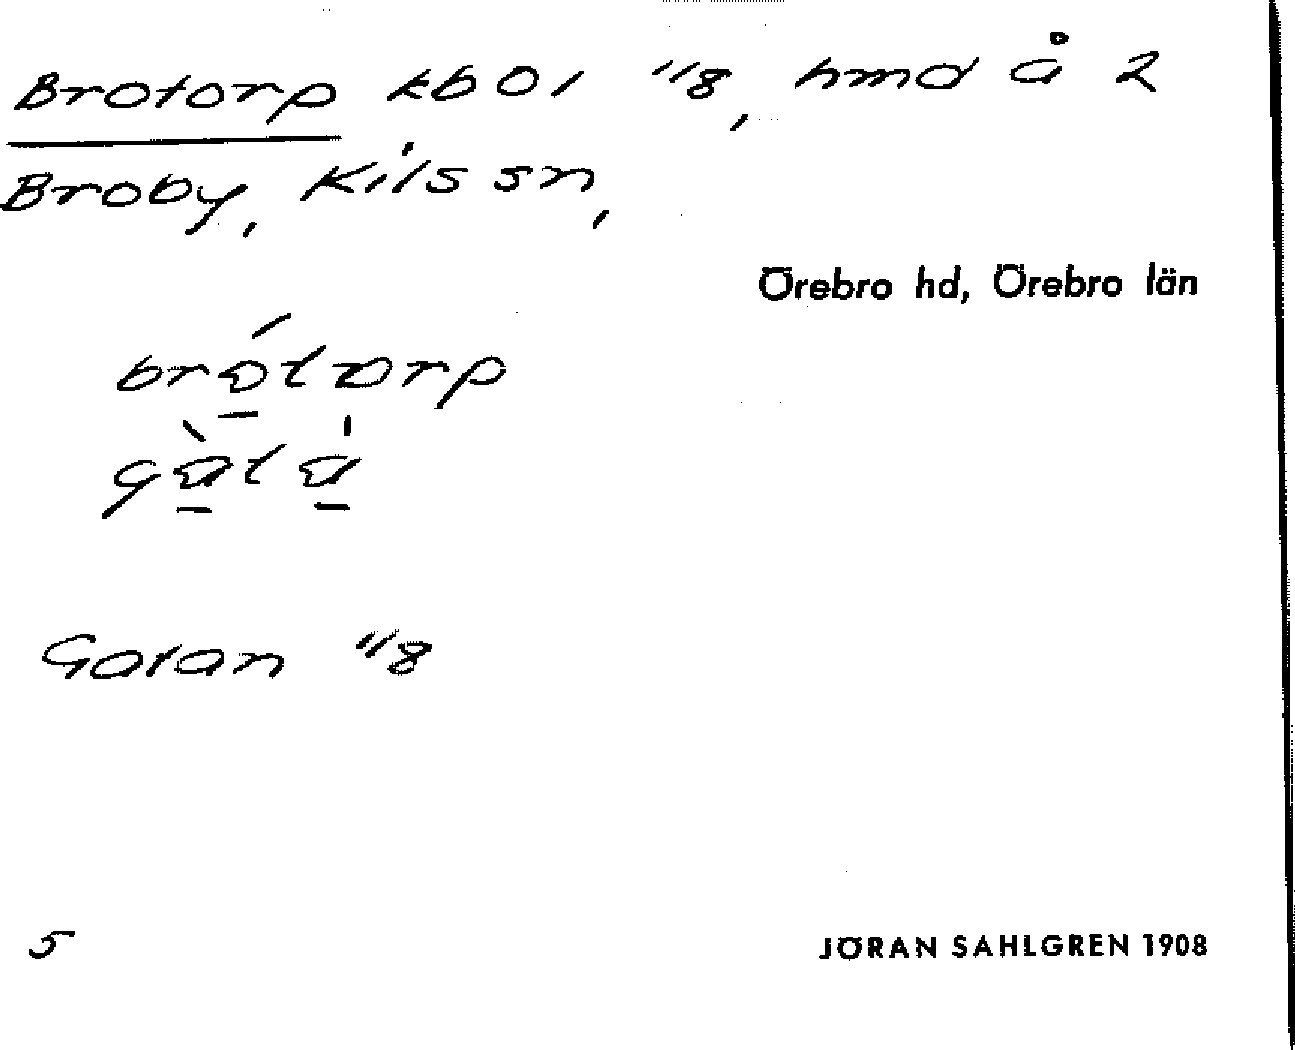 Brotorp kbol 1/8, hmd å 2
Broby, Kils sn,
Örebro hd, Örebro län
brótorp
gàta
Gatan 1/8
5
JÖRAN SAHLGREN 1908